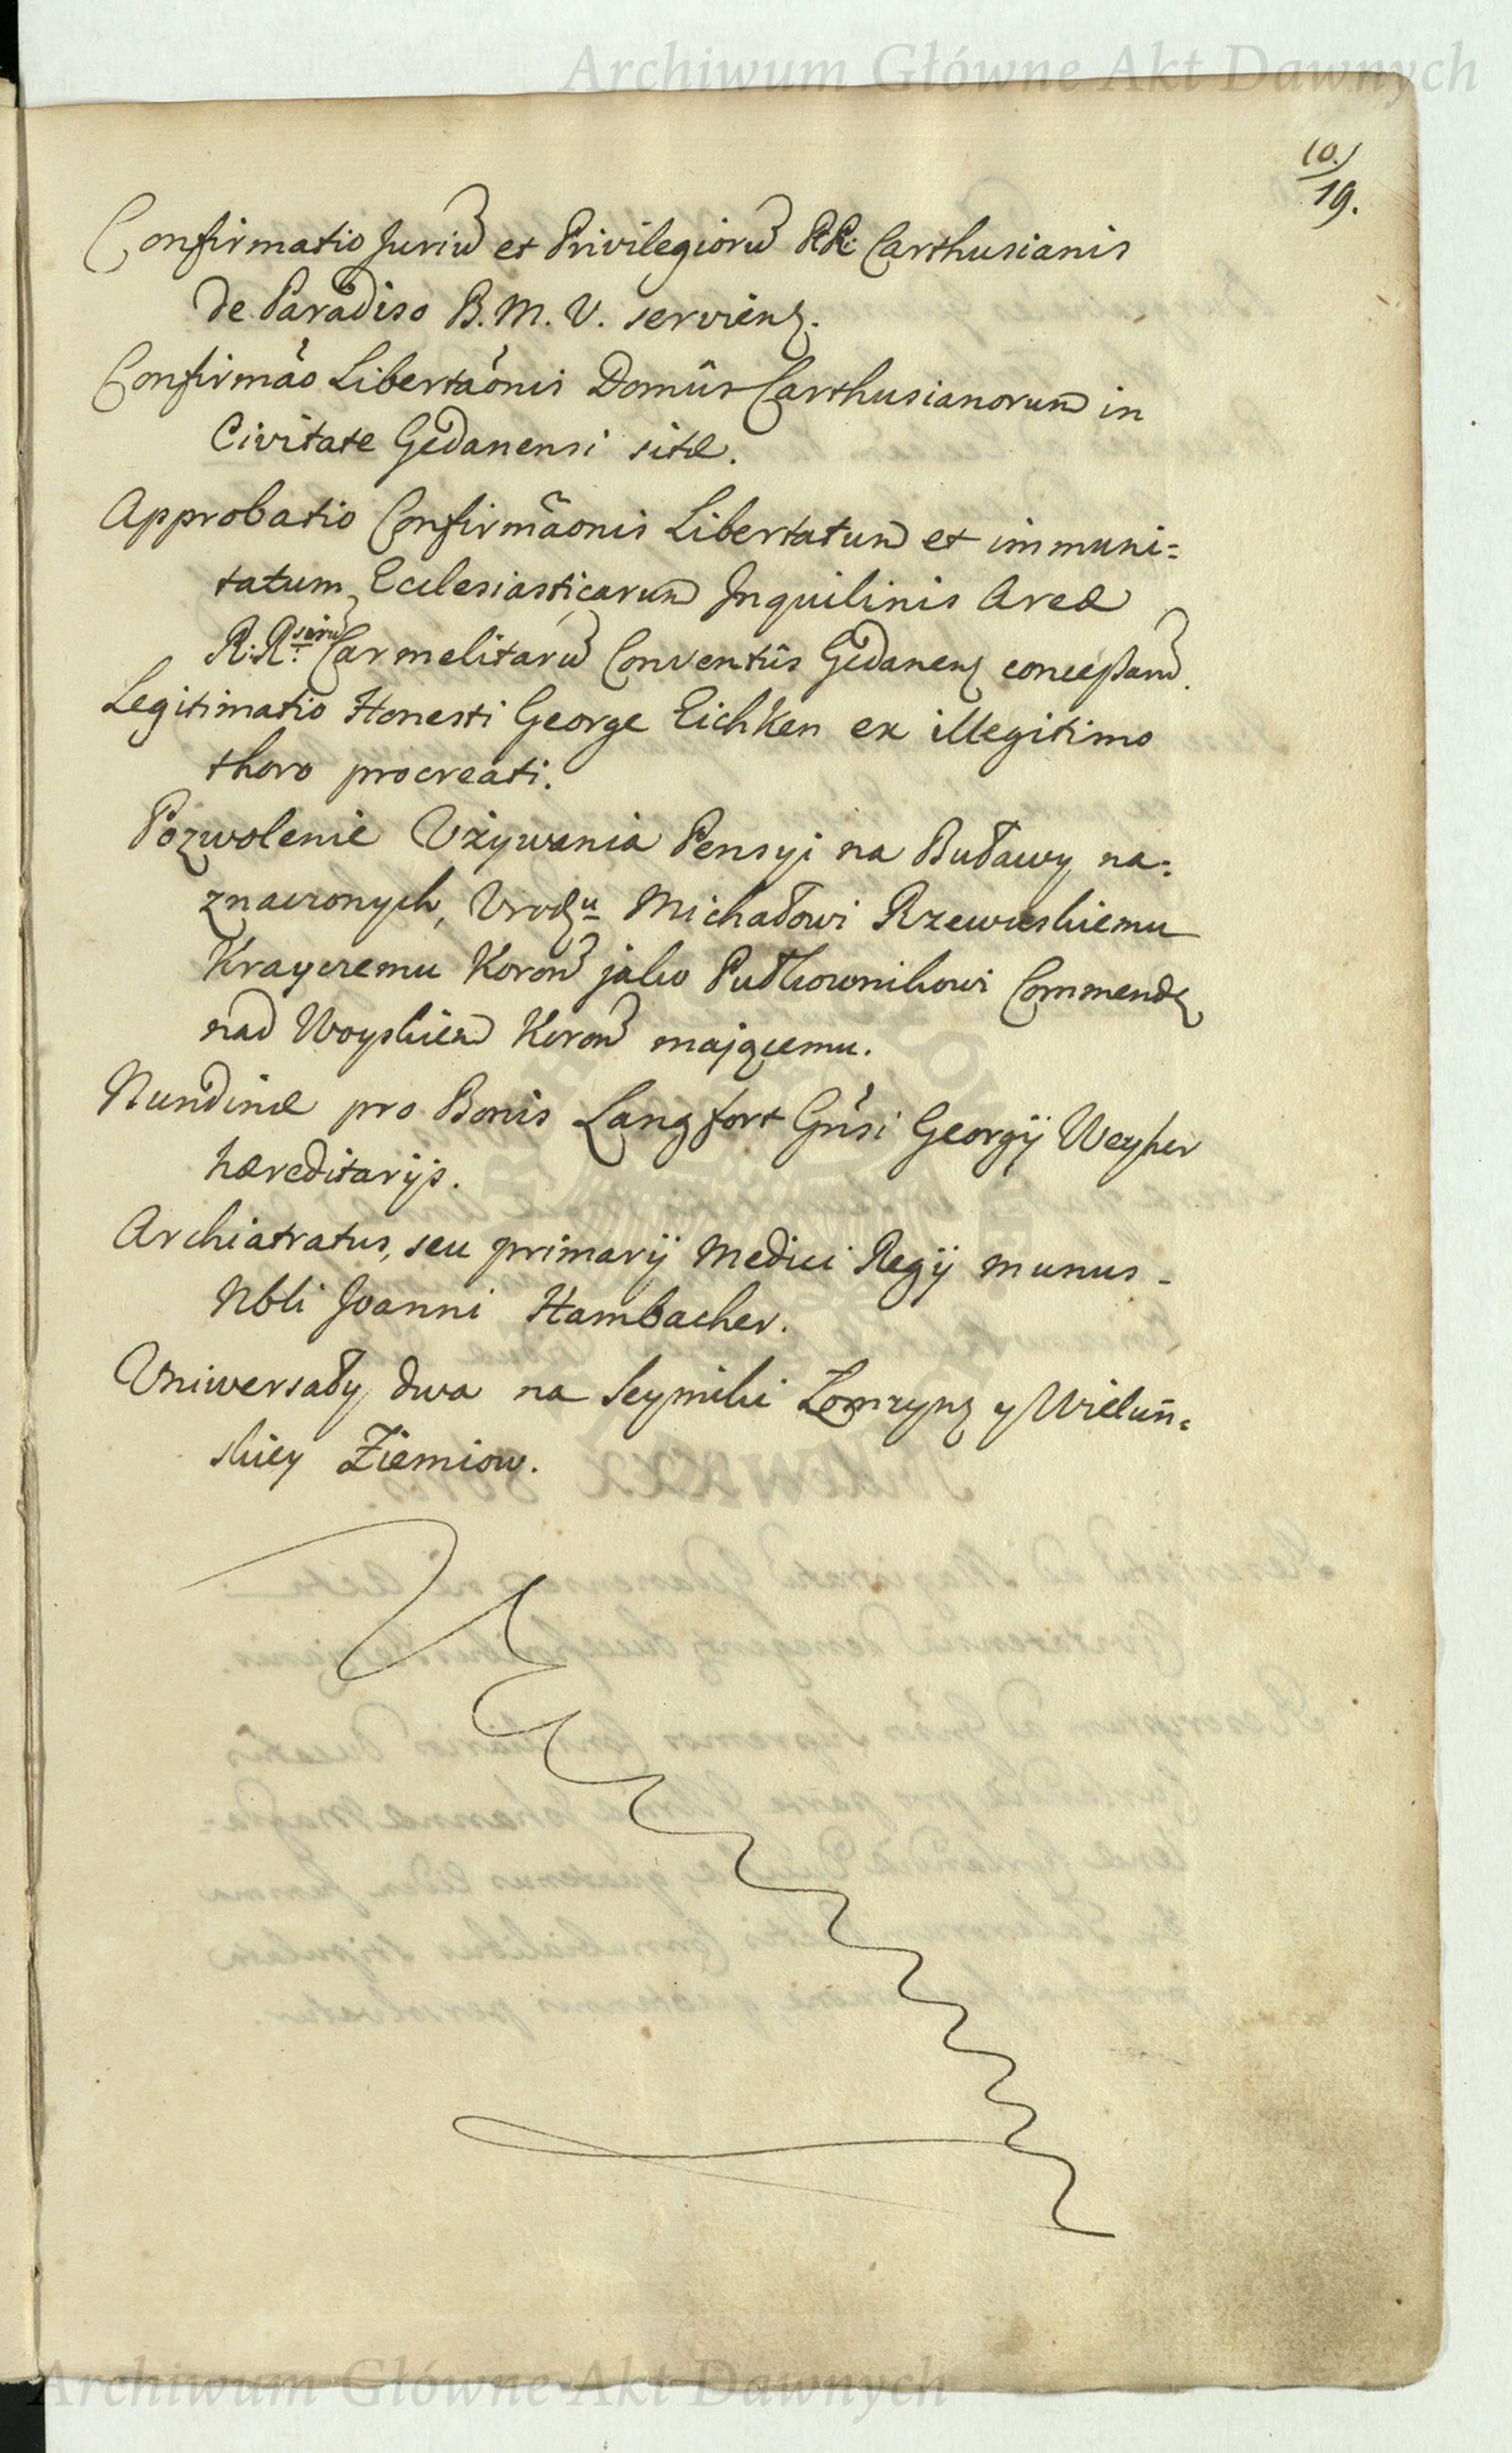 Archiwum Główne Akt Dawnych
10.)
19.
Confirmatio Juriũ et Privilegiorũ RR: Carthusianis
de Paradiso B. M. V. servienę.
Confirmão Libertaõnis Domûs Carthusianorum in
Civitate Gedanensi sitæ.
Approbatio Confirmãonis Libertatum et immuni=
tatum Ecclesiasticarum Inquilinis Areæ
R:R. Carmelitarũ Conventûs Gedanenę concessarũ.
Legitimatio Honesti George Eichken ex illegitimo
thoro procreati.
Pozwolenie Używania Pensyi na Buławy na=
znaczonych, Urodzu Michałowi Rzewuskiemu
Krayczemu Koroñ jako Pułkownikowi Commendę
nad Woyskiem Koroñ mającemu.
Nundinæ pro Bonis Langfort Gñsi Georgij Weyher
hæreditarijs.
Archiatratus, seu primarij Medici Regij munus -
Nbli Joanni Hambacher.
Uniwersały dwa na Seymiki Łomzynę y Wieluń=
skiey Ziemiow.
Archiwum Główne Akt Dawnych